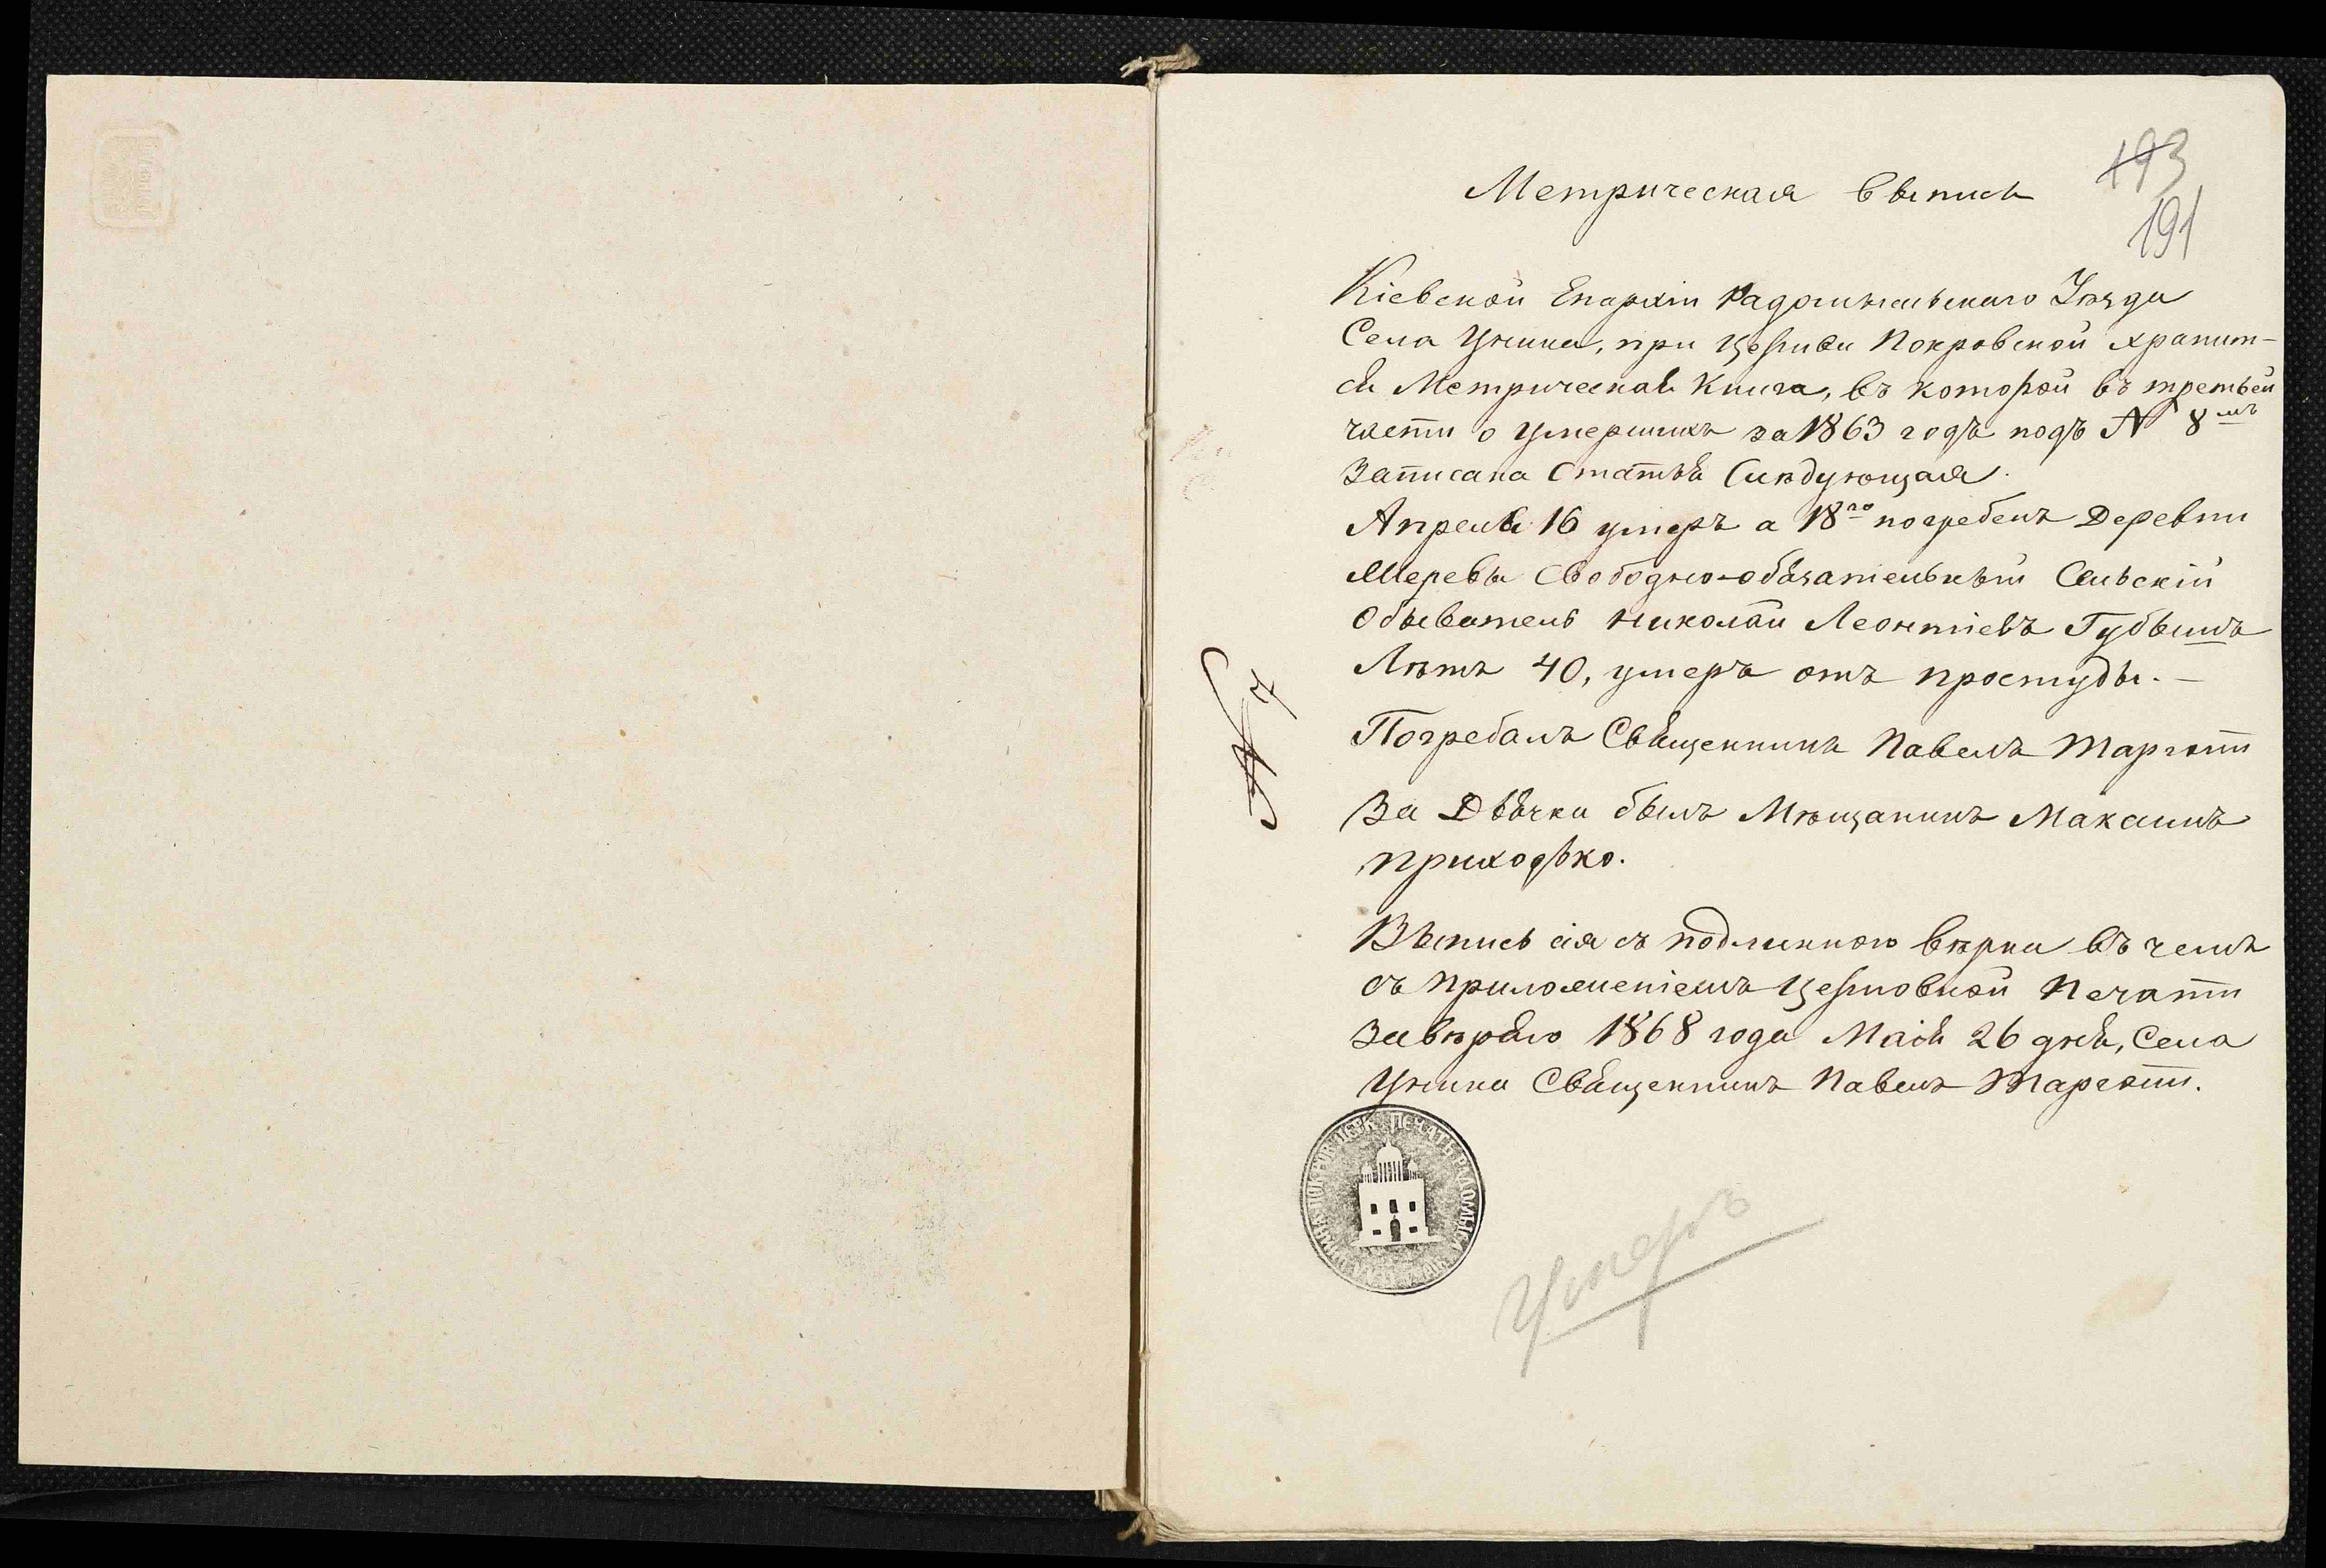 193
191
Метрическая выпись
Кіевской Епархіи Радомысльскаго Уѣзда
Села Унина, при Церкви Покровской хранит-
ся Метрическая Книга, въ которой въ третьей
части о умершихъ за 1863 годъ подъ № 8мъ
Записана Статья Слѣдующая.
Апреля 16 умеръ а 18го погребенъ Деревни
Шеревы Свободно-обязательный Сельскій
Обыватель Николай Леонтіевъ Губымъ
Лѣтъ 40, умеръ отъ простуды. —
Погребалъ Священникъ Павелъ Таргоній
За Дьячка былъ Мѣщанинъ Максимъ
Приходько.
Выпись сія съ подлинною вѣрна въ чемъ
съ приложеніемъ Церковной Печати
Завѣряю 1868 года Маія 26 дня, Села
Унина Священникъ Павелъ Таргоній.
№ 7
ПЕЧАТЬ РАДОМЫСЛ
Умеръ